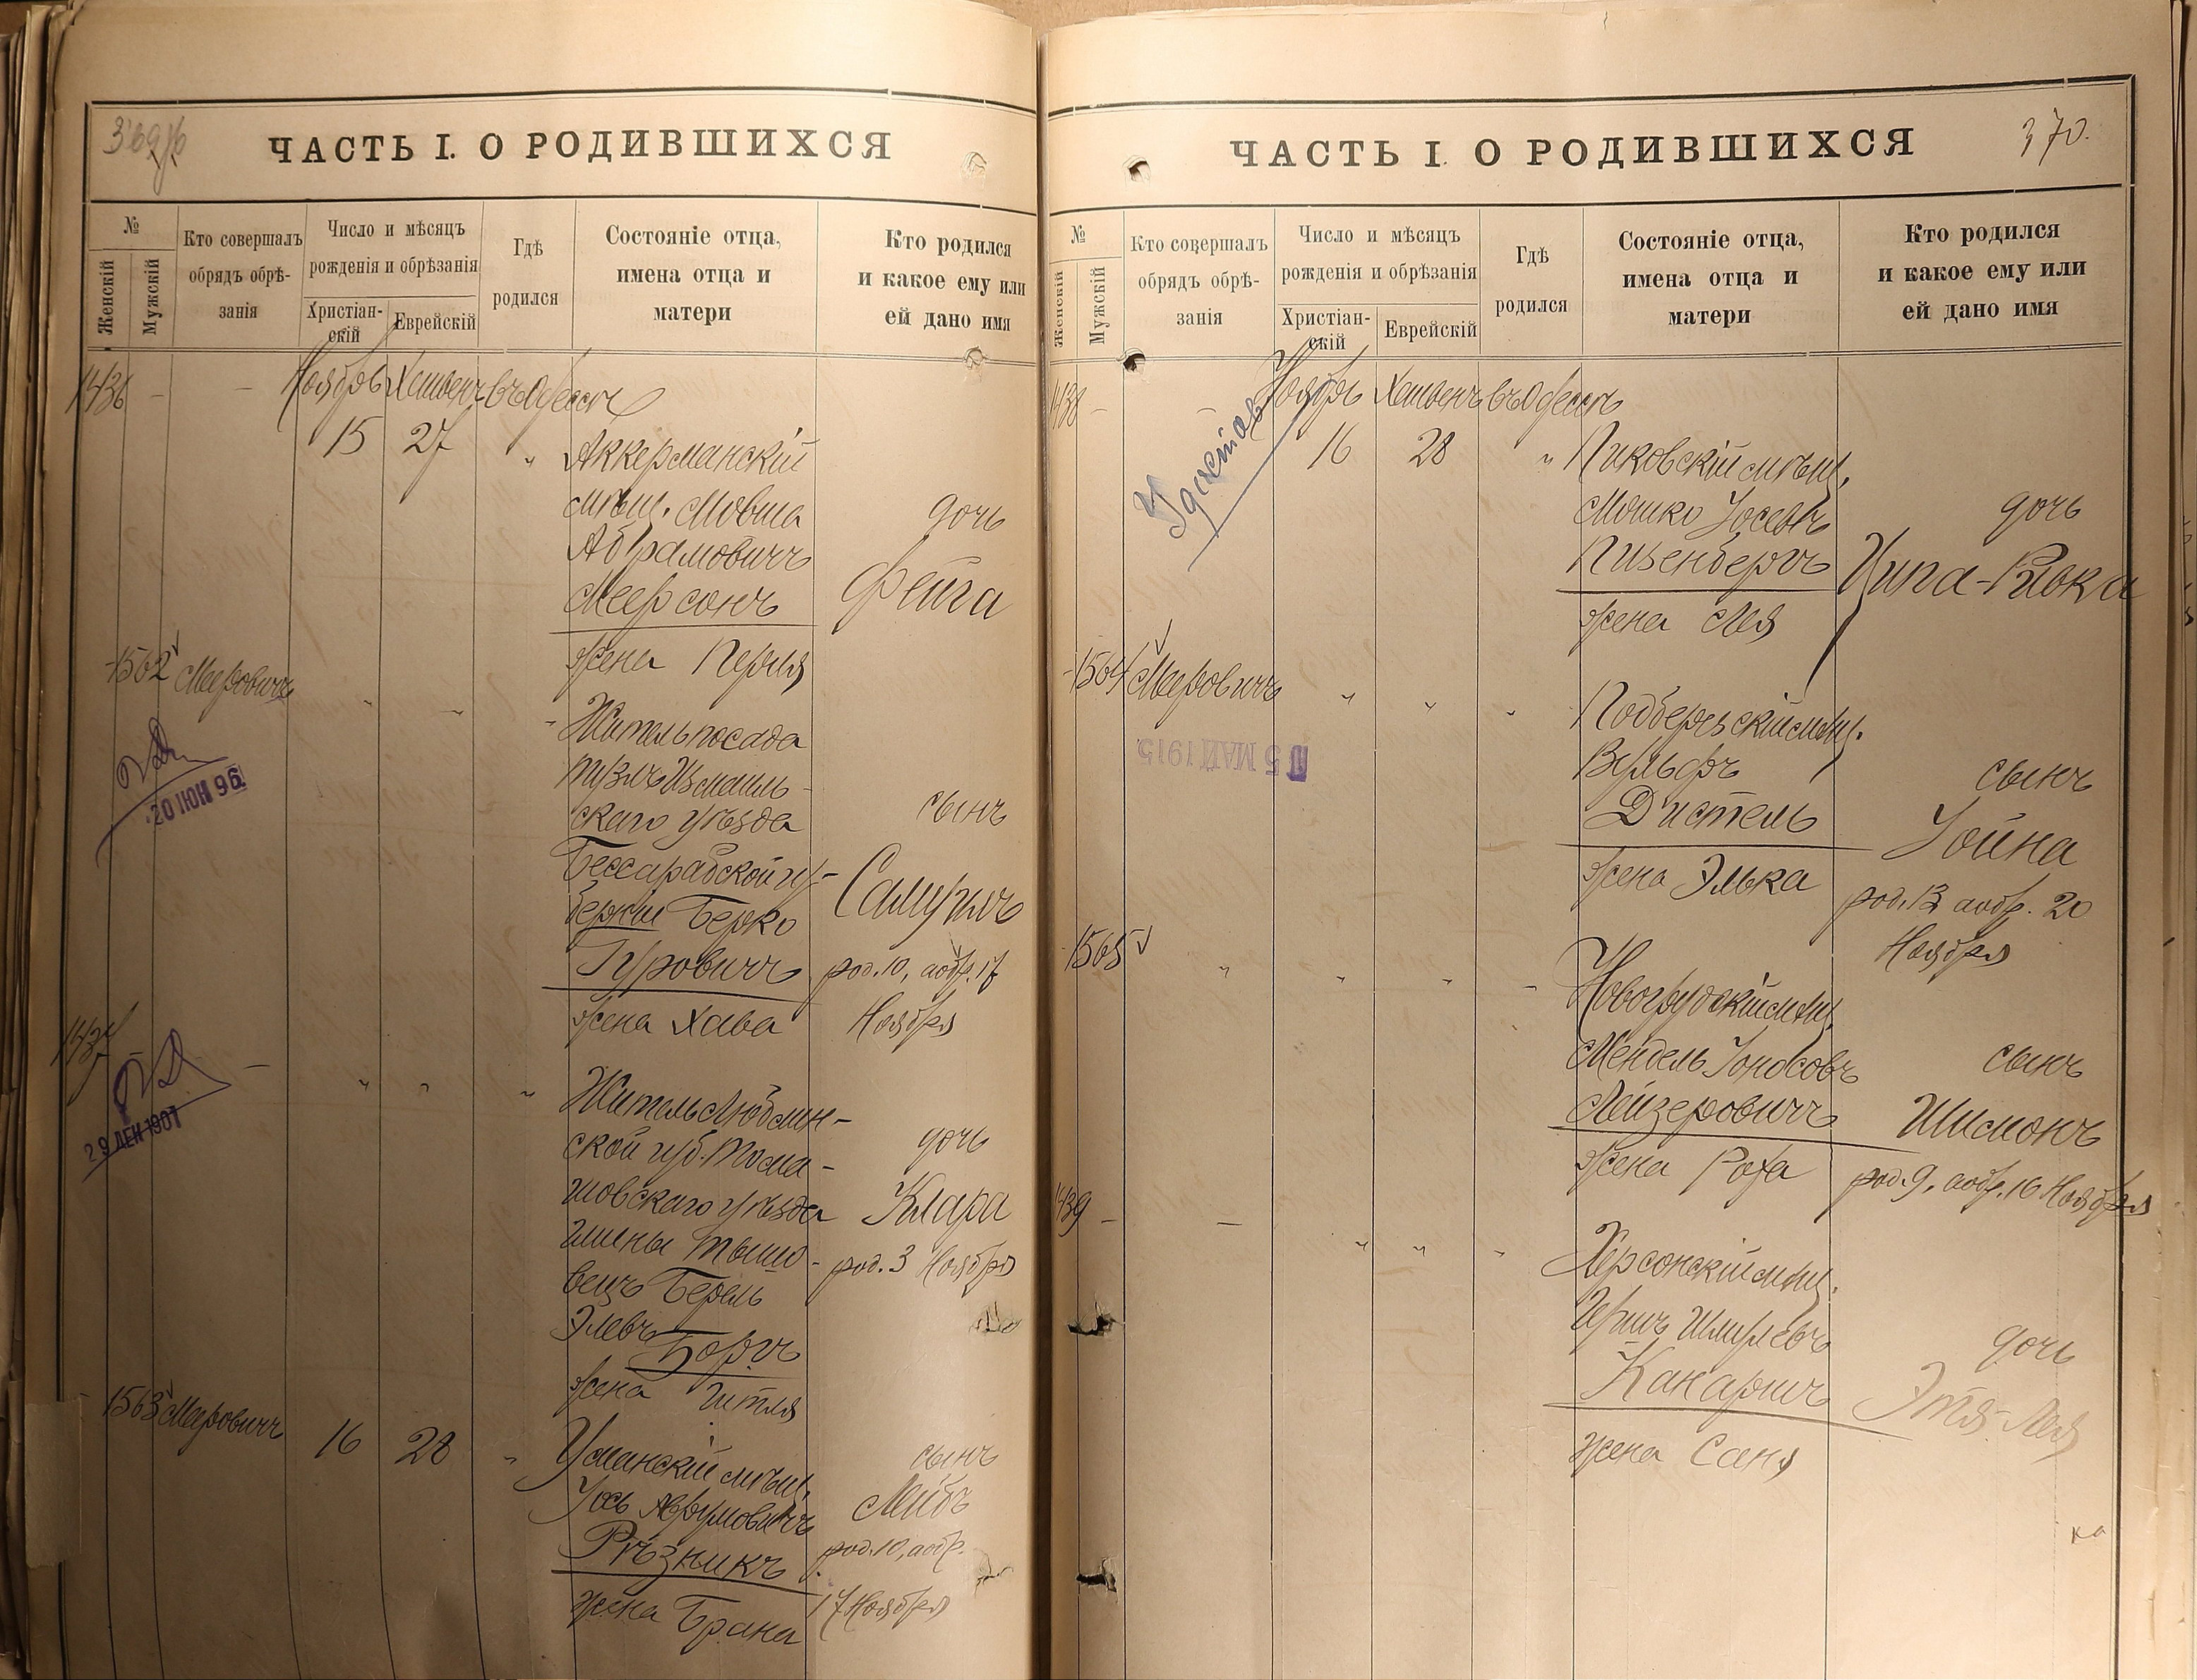 ЧАСТЬ I. О РОДИВШИХСЯ
№
Женскій
Мужскій
Кто совершалъ
обрядъ обрѣ-
занія
Число и мѣсяцъ
рожденія и обрѣзанія
Христіан-
скій
Еврейскій
Гдѣ
родился
Состояніе отца,
имена отца и
матери
Кто родился
и какое ему или
ей дано имя
1436 - - Ноябрь Хешвенъ въ Одессѣ
15 27 " Аккерманскій
мѣщ. Мовша
Абрамовичъ
Меерсонъ
жена Перля
дочь
Фейга
1562 Мееровичъ " " "
20 ІЮН 96
Житель посада
Тузлъ Измаиль-
скаго уѣзда
Бессарабской гу-
берніи Берко
Гуровичъ
жена Хава
сынъ
Самуилъ
род. 10, аобр. 17
Ноября
1437 - - " " "
29 ДЕК 1907
Житель Люблин-
ской губ. Тома-
шовскаго уѣзда
гмины Тышо-
вецъ Берель
Элевъ Боргъ
жена Гитля
дочь
Клара
род. 3 Ноября
1563 Мееровичъ 16 28 "
Уманскій мѣщ.
Іось Аврумовичъ
Рѣзникъ
жена Брана
сынъ
Лейбъ
род. 10, аобр.
17 Ноября
ЧАСТЬ I О РОДИВШИХСЯ
370.
№
Женскій
Мужскій
Кто совершалъ
обрядъ обрѣ-
занія
Число и мѣсяцъ
рожденія и обрѣзанія
Христіан-
скій
Еврейскій
Гдѣ
родился
Состояніе отца,
имена отца и
матери
Кто родился
и какое ему или
ей дано имя
1438 - - Ноябрь Хешвенъ въ Одессѣ
16 28 " Пиковскій мѣщ.
Мошко Іосевъ
Пизенбергъ
жена Лея
дочь
Ципа-Ривка
1564 Мееровичъ " " "
15 МАЙ 1915
Подберезскій мѣщ.
Вульфъ
Дистель
жена Элька
сынъ
Іойна
род. 13, аобр. 20
Ноября
1565 " " " "
Новогрудскій мѣщ.
Мендель Іоносовъ
Лейзеровичъ
жена Роза
сынъ
Шимонъ
род. 9, аобр. 16 Ноября
1439 - - " " "
Херсонскій мѣщ.
Гершъ Шмулевъ
Канаричъ
жена Саня
дочь
Этя-Лея